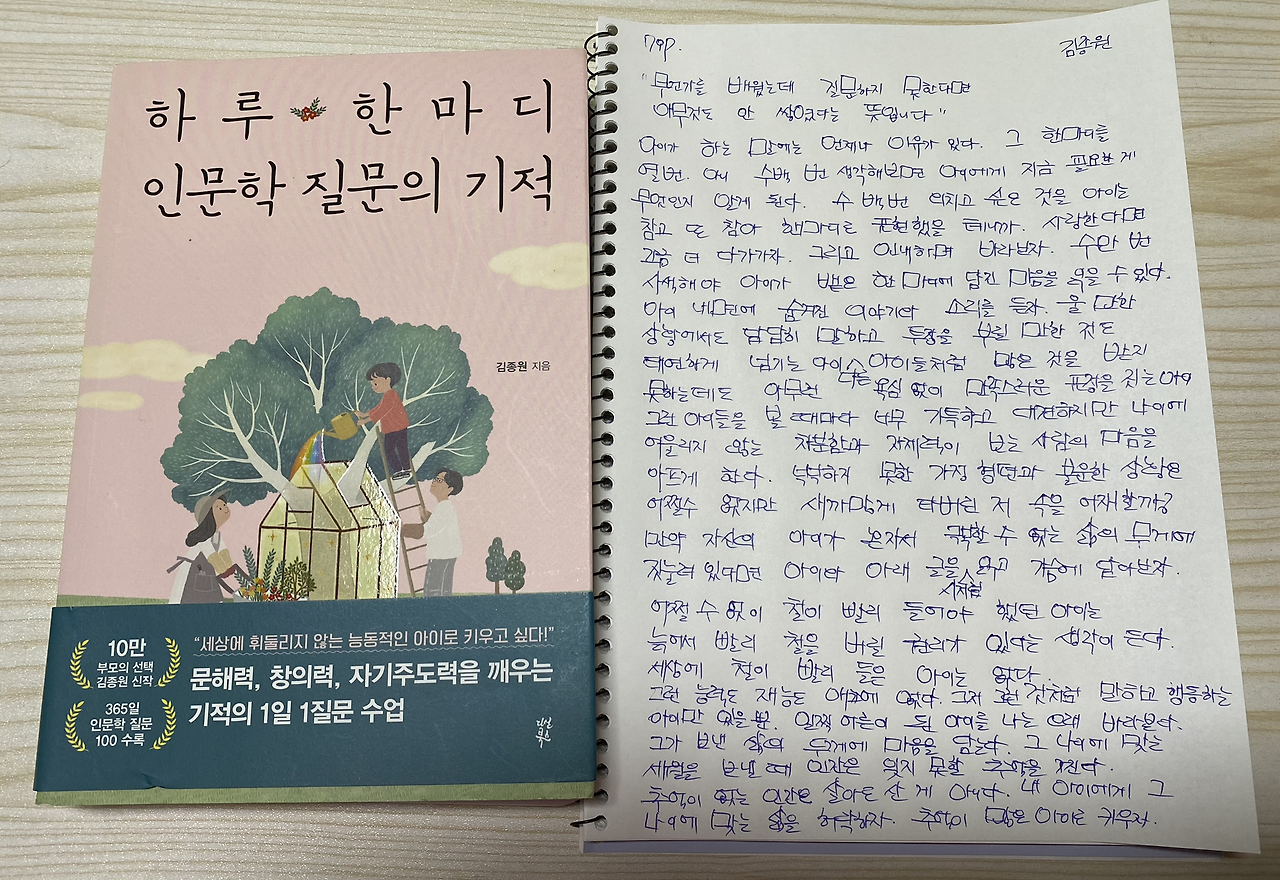 하루 한마디
인문학 질문의 기적
김종원 지음
10만
부모의 선택
김종원 신작
365일
인문학 질문
100 수록
"세상에 휘둘리지 않는 능동적인 아이로 키우고 싶다!"
문해력, 창의력, 자기주도력을 깨우는
기적의 1일 1질문 수업
79p.
김종원
"무언가를 배웠는데 질문하지 못한다면
아무것도 안 쌓였다는 뜻입니다"
아이가 하는 말에는 언제나 이유가 있다. 그 한마디를
열 번. 아니 수백 번 생각해보면 아이에게 지금 필요한 게
무엇인지 알게 된다. 수백 번 외치고 싶은 것을 아이는
참고 또 참아 한마디로 표현했을 테니까. 사랑한다면
조금 더 다가가자. 그리고 인내하며 바라보자. 수만 번
사색해야 아이가 뱉은 한 마디에 담긴 마음을 읽을 수 있다.
아이 내면에 숨겨진 이야기와 소리를 듣자. 울 만한
상황에서도 담담히 말하고 투정을 부릴 만한 것도
태연하게 넘기는 아이, 아이들처럼 많은 것을 받지
못하는데도 아무런 욕심 없이 만족스러운 표정을 짓는 아이
다른
그런 아이들을 볼 때마다 너무 기특하고 대견하지만 나이에
어울리지 않는 차분함과 자제력이 보는 사람의 마음을
아프게 한다. 넉넉하지 못한 가정 형편과 불운한 상황은
어쩔수 없지만 새까맣게 타버린 저 속을 어찌할까?
만약 자신의 아이가 혼자서 극복할 수 없는 삶의 무게에
짓눌려 있다면 아이와 아래 글을 읽고 가슴에 담아보자.
시처럼
어쩔 수 없이 철이 빨리 들어야 했던 아이는
늙어서 빨리 철을 버릴 권리가 있다는 생각이 든다.
세상에 철이 빨리 들은 아이는 없다.
그런 능력도 재능도 애초에 없다. 그저 그런 것처럼 말하고 행동하는
아이만 있을 뿐. 일찍 어른이 된 아이를 나는 오래 바라본다.
그가 보낸 삶의 무게에 마음을 담는다. 그 나이에 맞는
세월을 보낼 때 인간은 잊지 못할 추억을 가진다.
추억이 없는 인간은 살아도 산 게 아니다. 내 아이에게 그
나이에 맞는 삶을 허락하자. 추억이 많은 아이로 키우자.